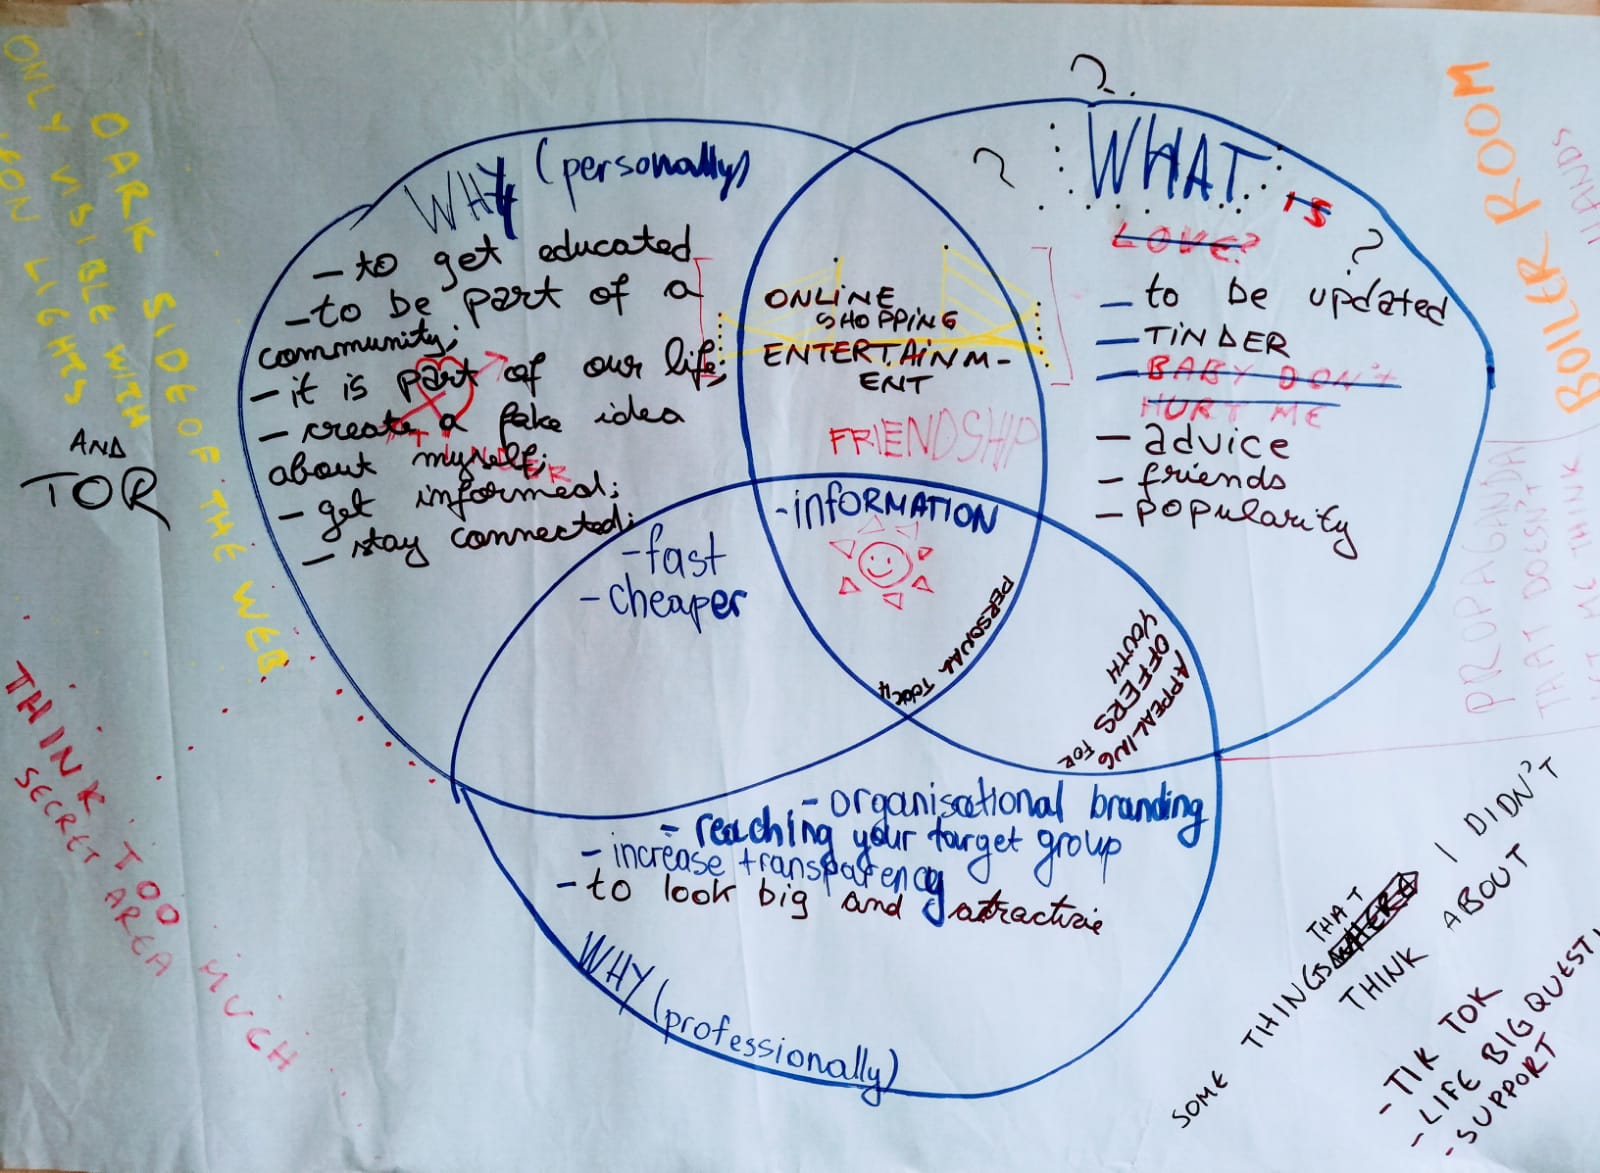 ?
WHY (personally)
- to get educated
- to be part of a
community;
- it is part of our life;
- create a fake idea
about myself;
- get informed;
- stay connected;
TINDER
?
WHAT IS
LOVE?
?
- to be updated
- TINDER
- BABY DON'T
HURT ME
- advice
- friends
- popularity
ONLINE
SHOPPING
ENTERTAINM-
ENT
FRIENDSHIP
- INFORMATION
- fast
- cheaper
PERSONAL TOUCH
APPEALING
OFFERS FOR
YOUTH
- organisational branding
- reaching your target group
- increase transparency
- to look big and attractive
WHY (professionally)
DARK SIDE OF THE WEB
ONLY VISIBLE WITH
NEON LIGHTS
AND
TOR
THINK TOO MUCH
SECRET AREA
BOILER ROOM
HANDS
PROPAGANDA
THAT DOESN'T
ME THINK
SOME THINGS THAT I DIDN'T
THINK ABOUT
- TIK TOK
- LIFE BIG QUESTI
- SUPPORT